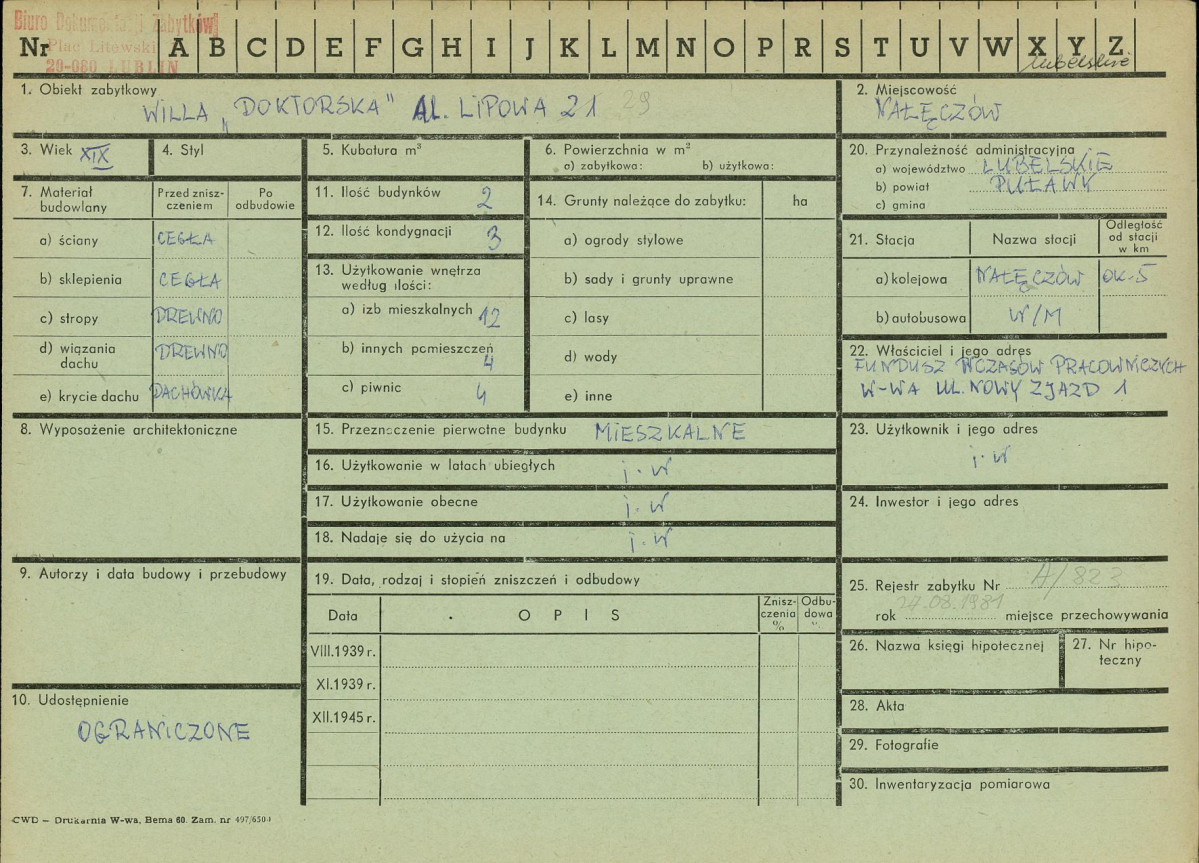 Biuro Dokumentacji Zabytków
Plac Litewski
20-080 LUBLIN
Nr A B C D E F G H I J K L M N O P R S T U V W X Y Z
lubelskie
1. Obiekt zabytkowy
WILLA „DOKTORSKA" AL. LIPOWA 21 29
2. Miejscowość
NAŁĘCZÓW
3. Wiek XIX
4. Styl
5. Kubatura m³
6. Powierzchnia w m²
a) zabytkowa: b) użytkowa:
20. Przynależność administracyjna
a) województwo LUBELSKIE
b) powiat PUŁAWY
c) gmina
7. Materiał budowlany
Przed zniszczeniem
Po odbudowie
a) ściany CEGŁA
b) sklepienia CEGŁA
c) stropy DREWNO
d) wiązania dachu DREWNO
e) krycie dachu DACHÓWKA
11. Ilość budynków 2
12. Ilość kondygnacji 3
13. Użytkowanie wnętrza
według ilości:
a) izb mieszkalnych 12
b) innych pomieszczeń 4
c) piwnic 4
14. Grunty należące do zabytku: ha
a) ogrody stylowe
b) sady i grunty uprawne
c) lasy
d) wody
e) inne
21. Stacja
Nazwa stacji
Odległość od stacji w km
a) kolejowa NAŁĘCZÓW OK-5
b) autobusowa W/M
22. Właściciel i jego adres
FUNDUSZ WCZASÓW PRACOWNICZYCH
W-WA UL. NOWY ZJAZD 1
8. Wyposażenie architektoniczne
15. Przeznaczenie pierwotne budynku MIESZKALNE
16. Użytkowanie w latach ubiegłych j. w
17. Użytkowanie obecne j. w
18. Nadaje się do użycia na j. w
23. Użytkownik i jego adres
j. w
24. Inwestor i jego adres
9. Autorzy i data budowy i przebudowy
19. Data, rodzaj i stopień zniszczeń i odbudowy
Data
O P I S
Zniszczenia %
Odbudowa %
VIII.1939 r.
XI.1939 r.
XII.1945 r.
25. Rejestr zabytku Nr A/822
rok 27.08.1981 miejsce przechowywania
26. Nazwa księgi hipotecznej
27. Nr hipoteczny
10. Udostępnienie
OGRANICZONE
28. Akta
29. Fotografie
30. Inwentaryzacja pomiarowa
CWD – Drukarnia W-wa, Bema 60. Zam. nr 497/650-1